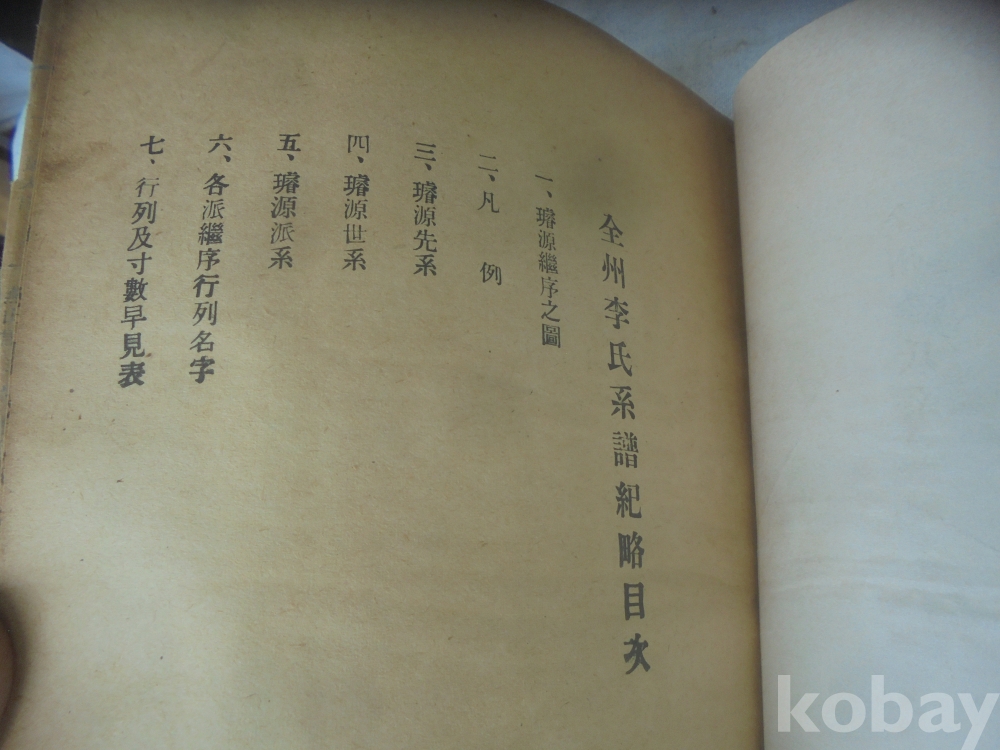 全州李氏系譜紀略目次
一、璿源繼序之圖
二、凡例
三、璿源先系
四、璿源世系
五、璿源派系
六、各派繼序行列名字
七、行列及寸數早見表
kobay